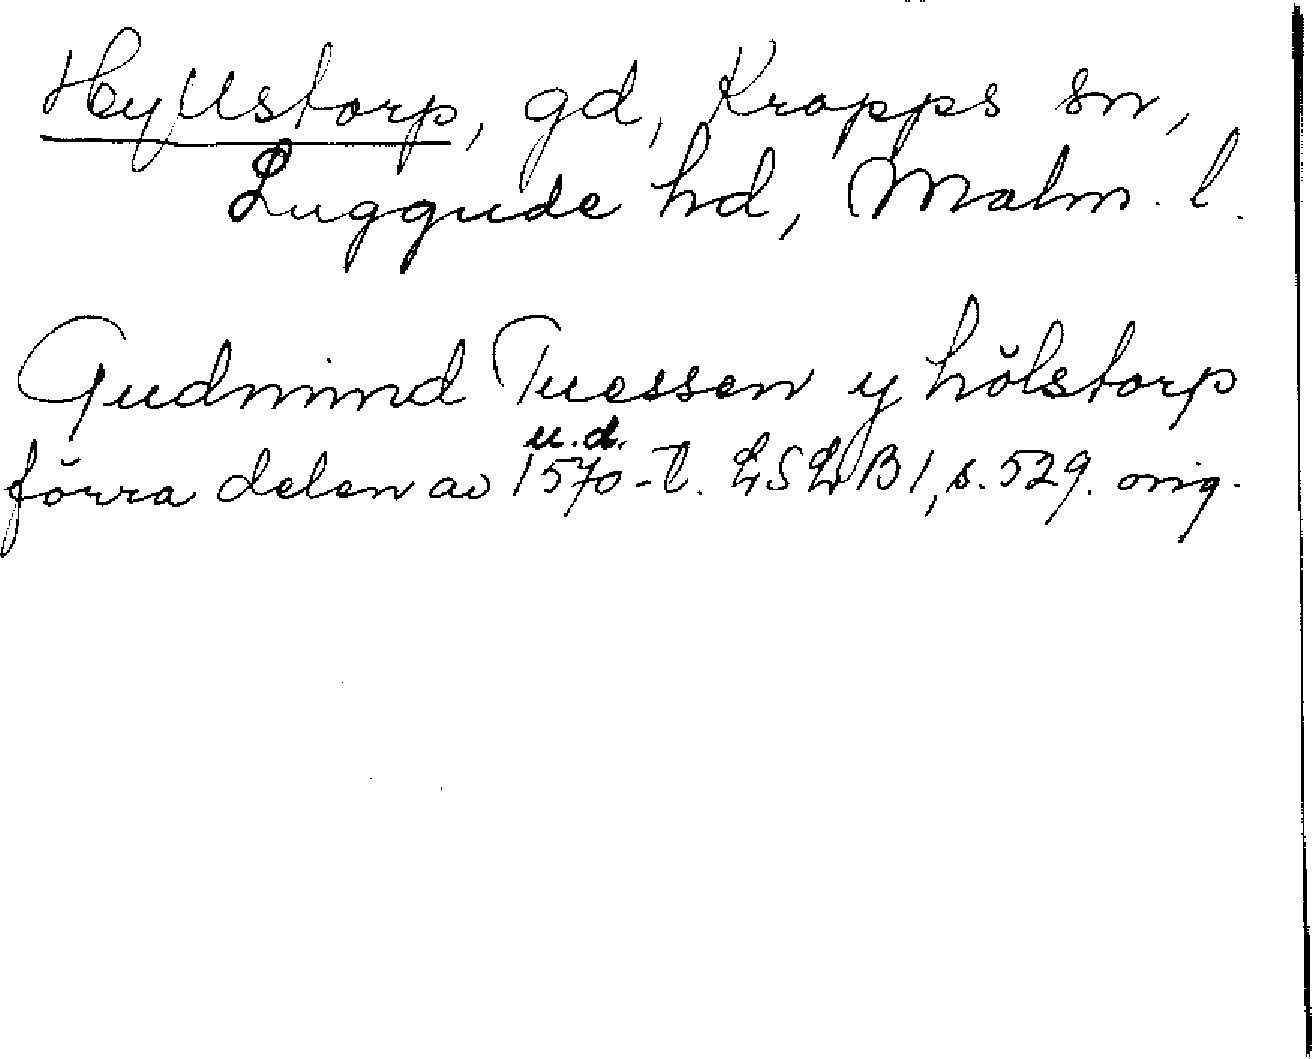 Hyllstorp, gd, Kropps sn,
Luggude hd, Malm. l.
Gudmind Tuessen y hŏlstorp
u.d.
förra delen av 1570-t. LSLB1, s. 529. orig.